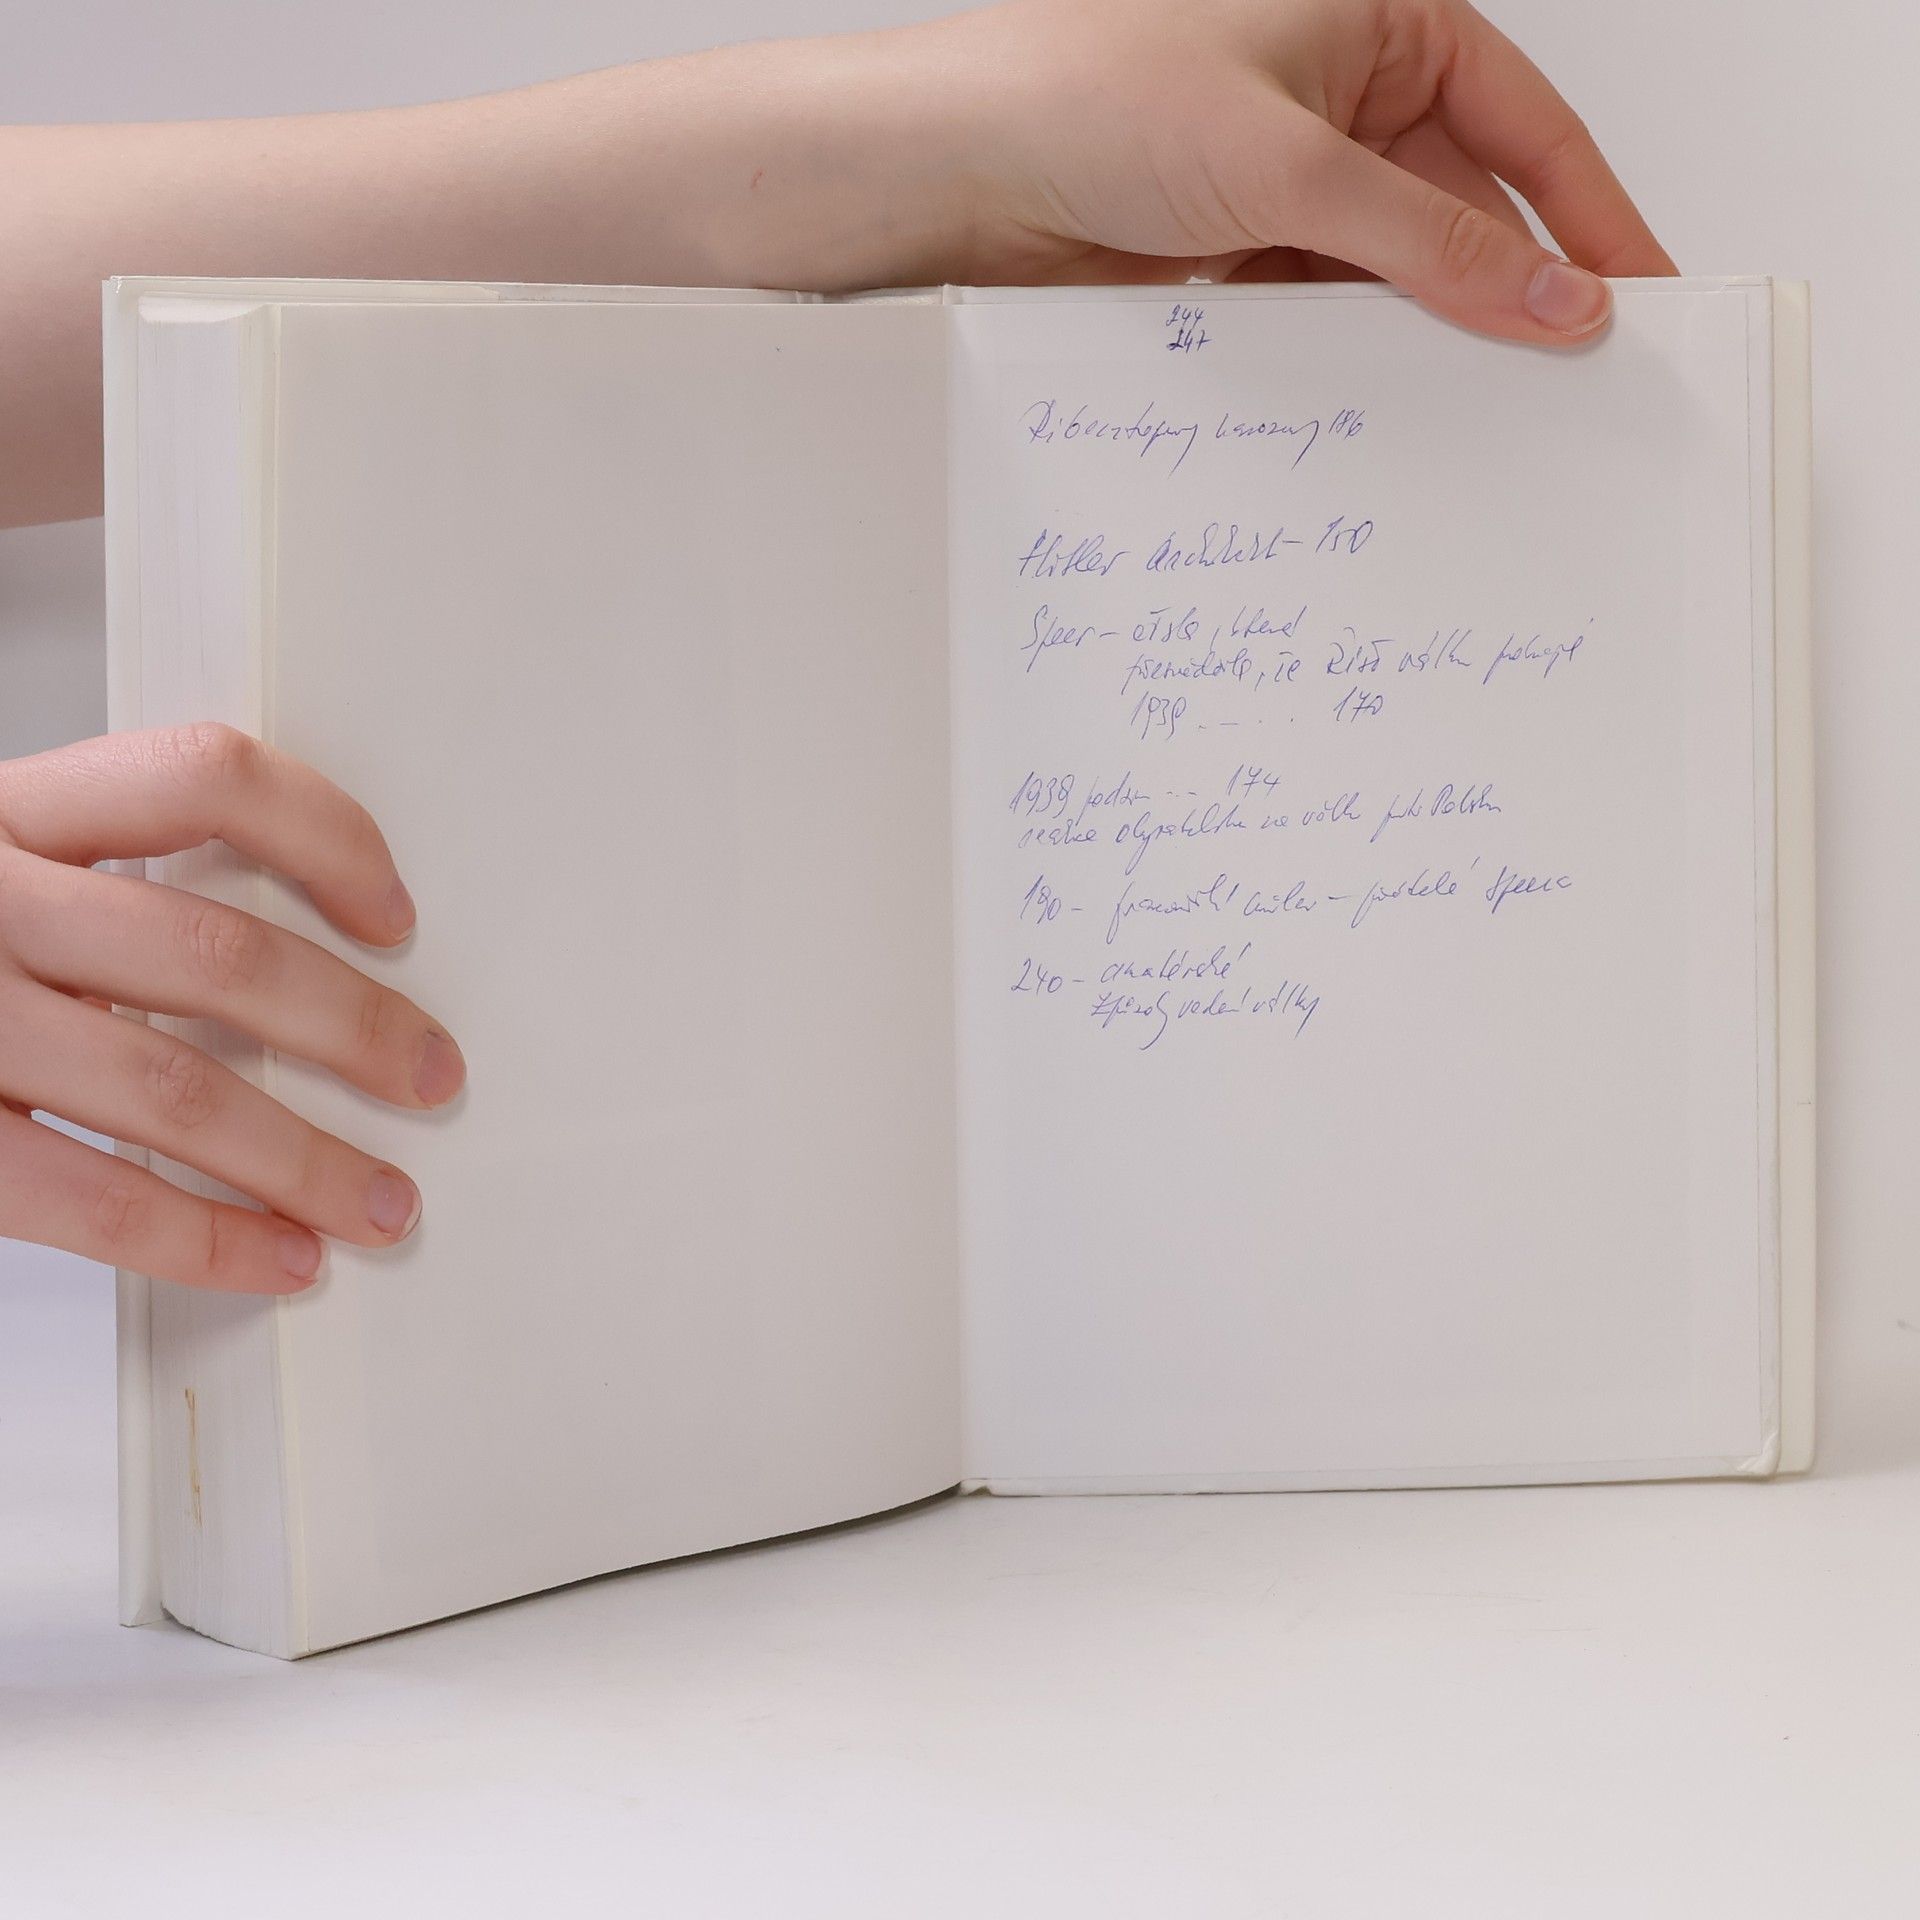 244
247
Ribbentropovy 186
Hitler architekt – 150
Speer – čísla, která
přesvědčila, že Říši válku
1939 . – . . 170
1939 podzim -- 174
reakce obyvatelstva na válku proti Polsku
190 – Hitler – přátelé Speera
240 – amatérské
způsoby vedení války